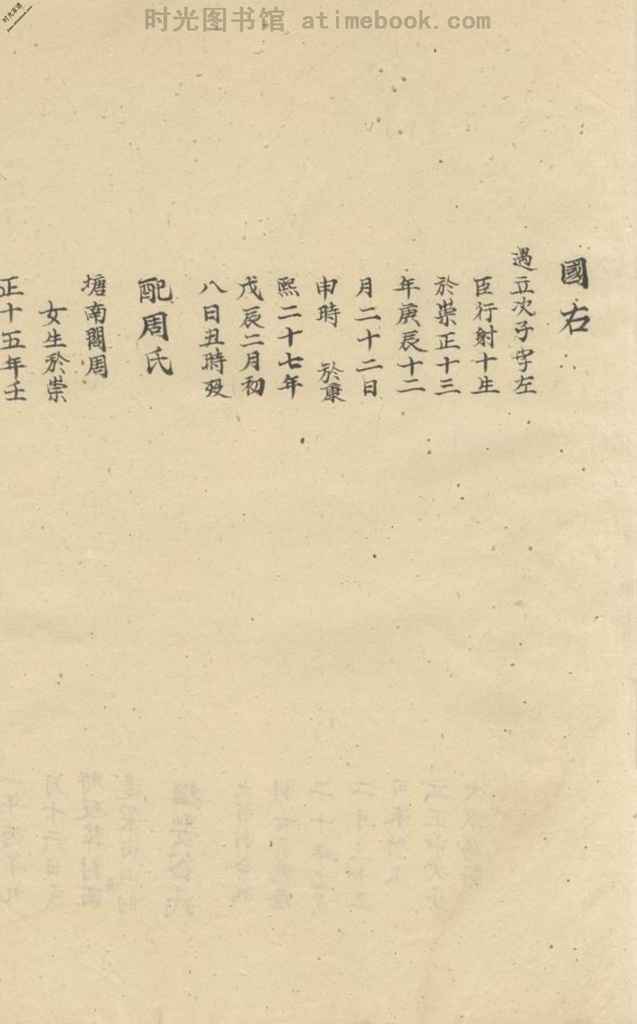 时光图书馆 atimebook.com
國右
遇立次子字左
臣行射十生
於崇正十三
年庚辰十二
月二十二日
申時 於康
熙二十七年
戊辰二月初
八日丑時歿
配周氏
塘南閣周
女生於崇
正十五年壬